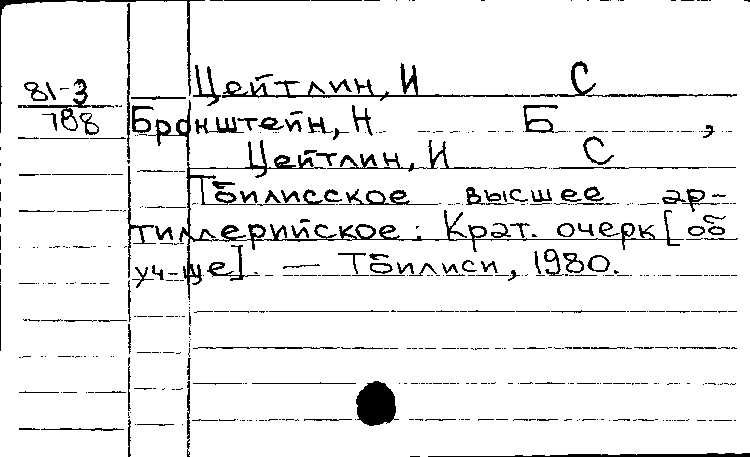 Цейтлин, И С
81-3
788
Бронштейн, Н Б ,
Цейтлин, И С
Тбилисское высшее ар-
тиллерийское: Крат. очерк [об
уч-ще]. — Тбилиси, 1980.